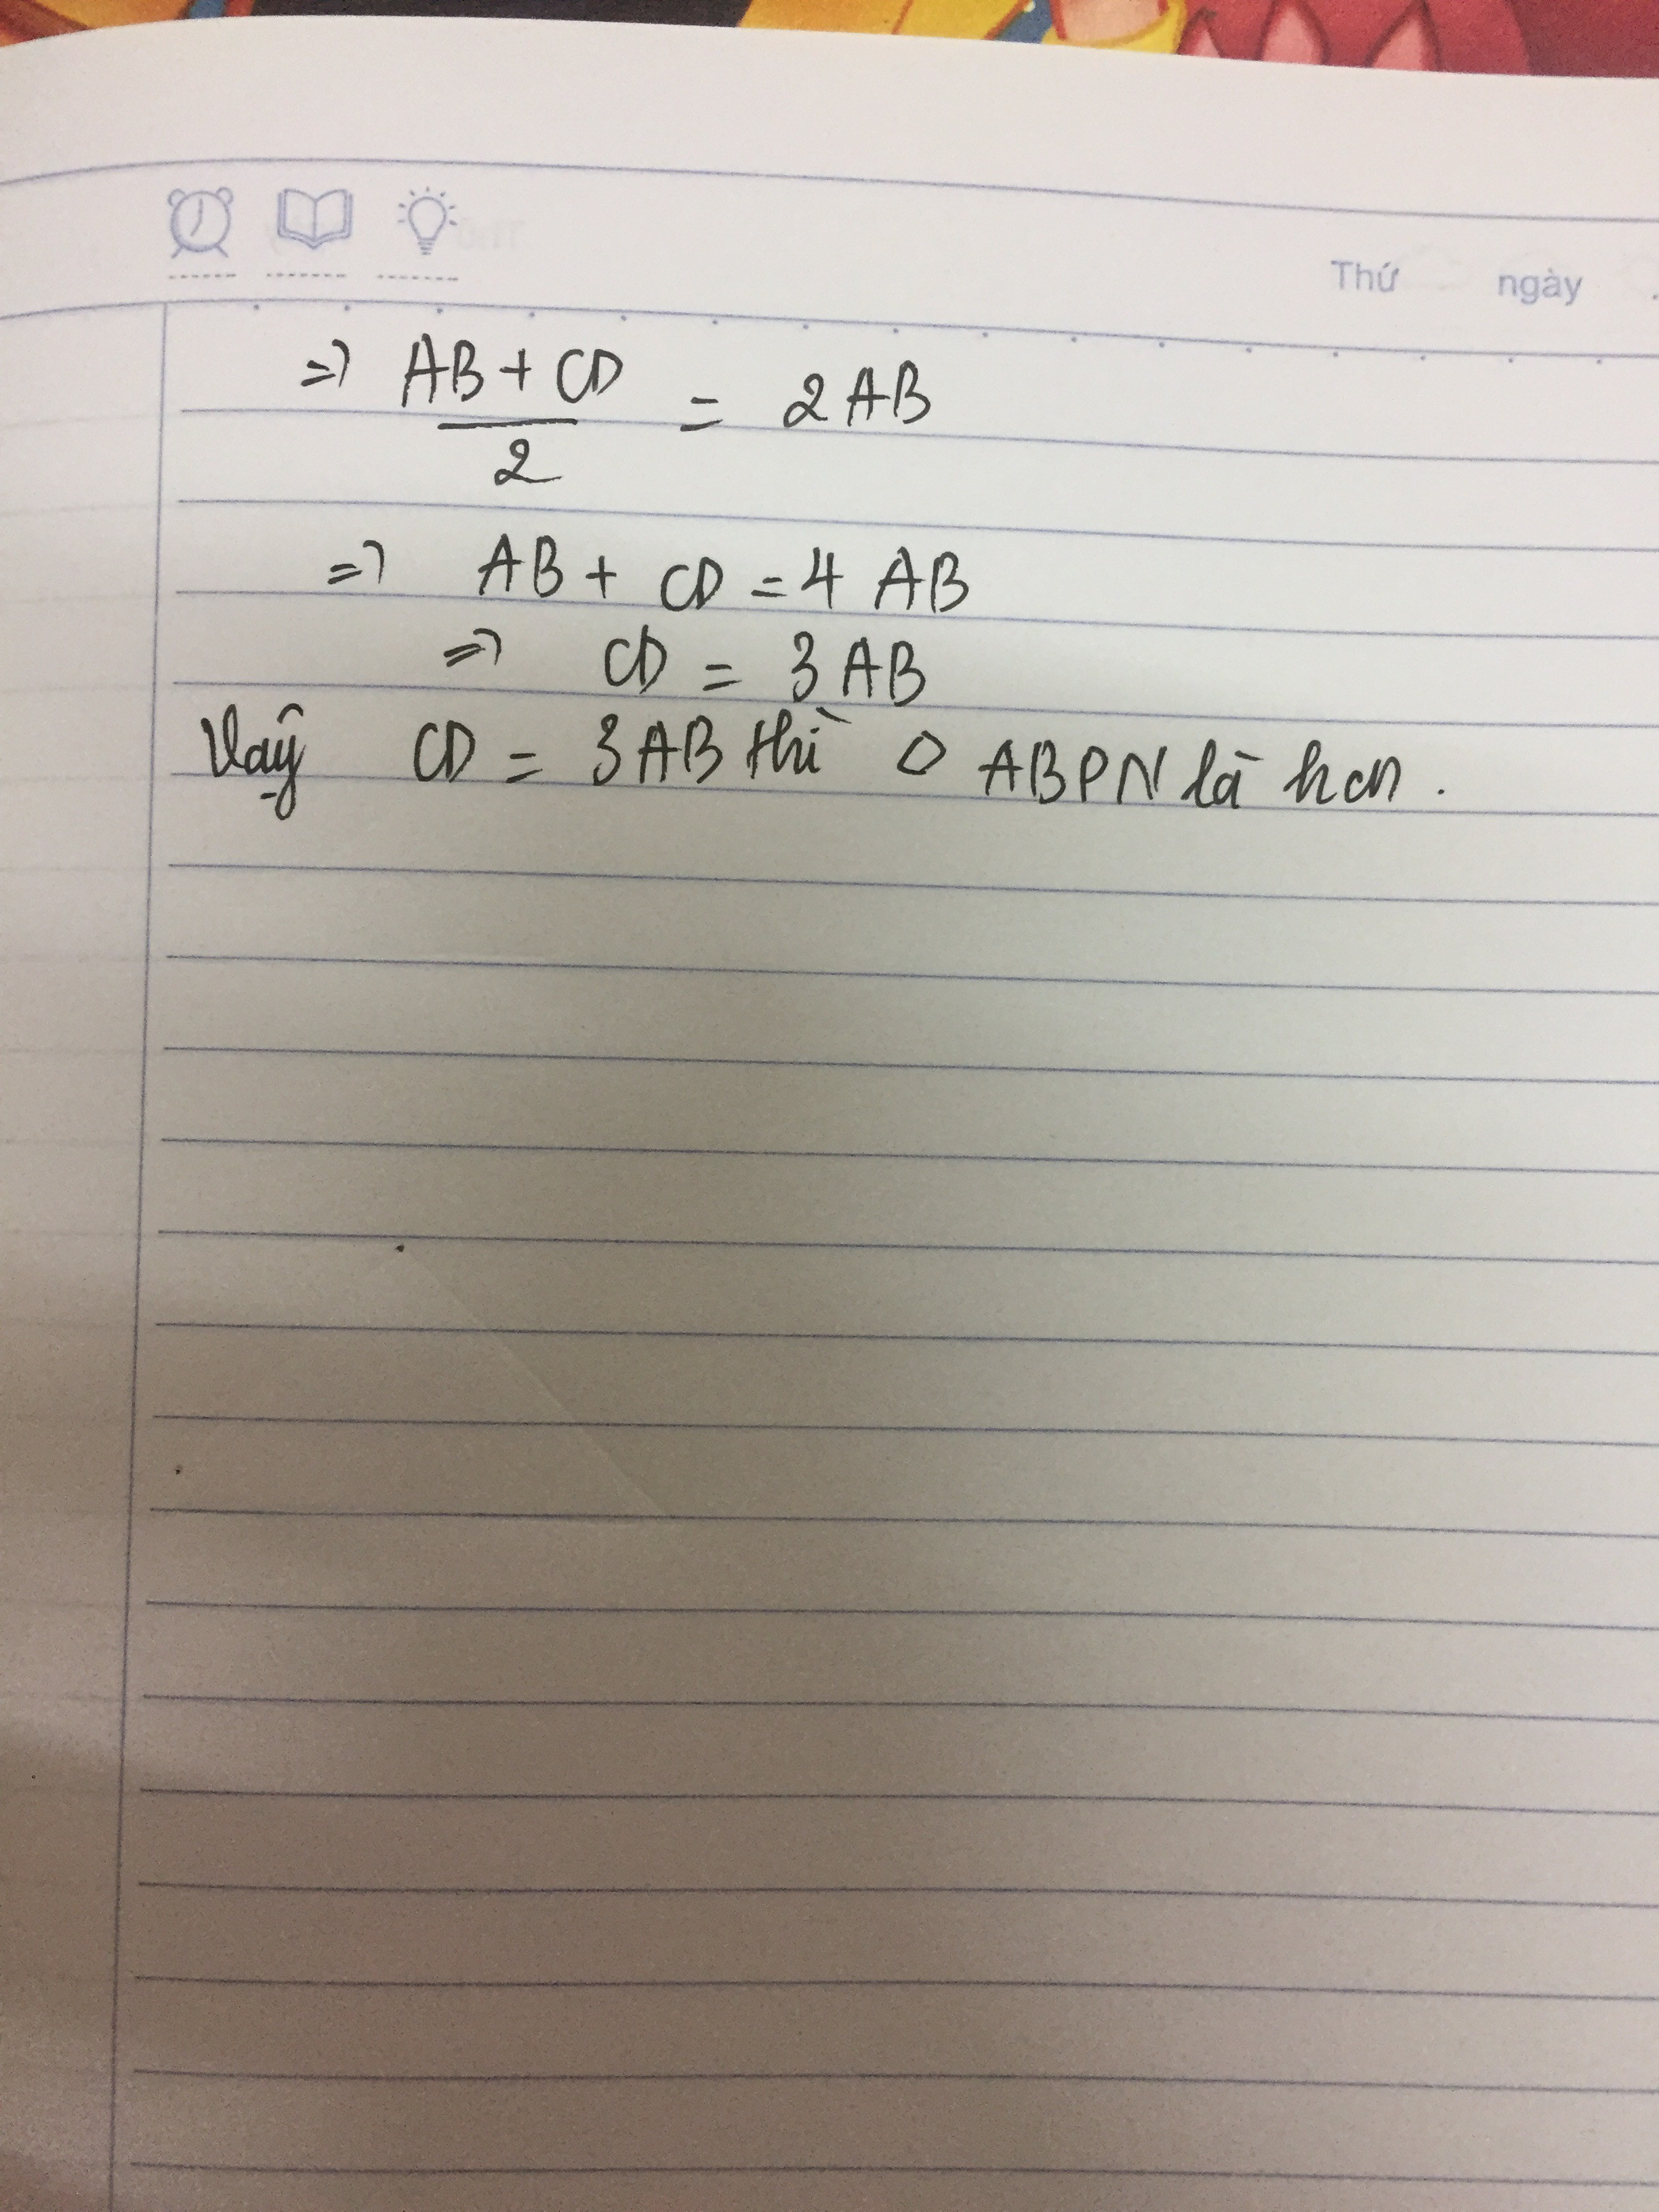 Thứ ngày
=> AB + CD / 2 = 2AB
=> AB + CD = 4 AB
=> CD = 3 AB
Vậy CD = 3AB thì ◇ ABPN là hcn.